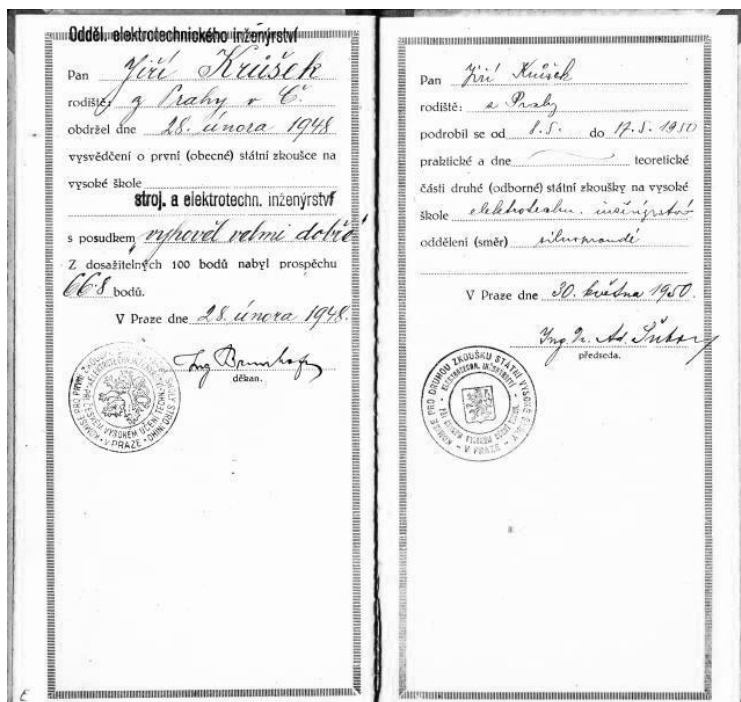 Odděl. elektrotechnického inženýrství
Pan Jiří Krůšek
rodiště: z Prahy v Č.
obdržel dne 28. února 1948
vysvědčení o první (obecné) státní zkoušce na
vysoké škole
stroj. a elektrotechn. inženýrství
s posudkem vyhověl velmi dobře
Z dosažitelných 100 bodů nabyl prospěchu
66·8 bodů.
V Praze dne 28. února 1948.
Ing
děkan.
V PRAZE
E
Pan Jiří Krůšek
rodiště: z Prahy
podrobil se od 8.5. do 17.5. 1950
praktické a dne teoretické
části druhé (odborné) státní zkoušky na vysoké
škole elektrotechn. inženýrství
oddělení (směr) silnoproudé
V Praze dne 30. května 1950.
Ing. Dr. Ad.
předseda.
KOMISE PRO DRUHOU ZKOUŠKU STÁTNÍ VYSOKÉ ŠKOLY
ELEKTROTECHN. INŽENÝRSTVÍ
V PRAZE